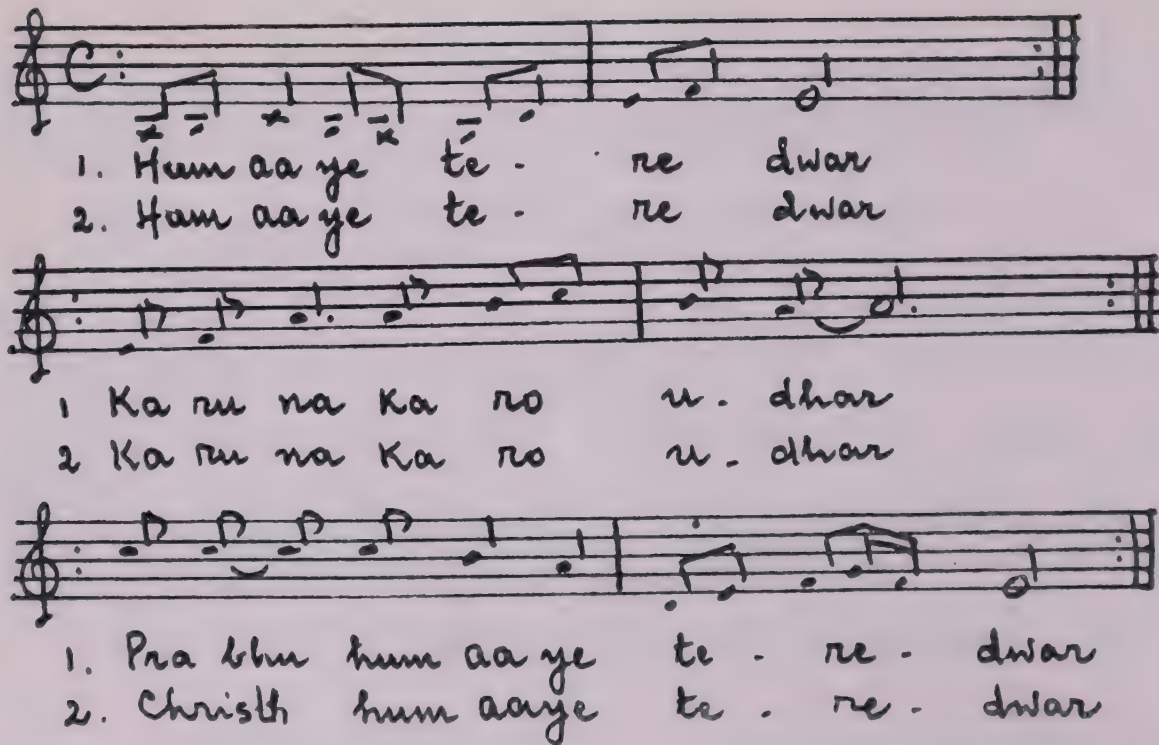 1. Hum aa ye te - re dwar
2. Hum aa ye te - re dwar
1 Ka ru na Ka ro u - dhar
2 Ka ru na Ka ro u - dhar
1. Pra bhu hum aa ye te - re - dwar
2. Christh hum aaye te - re - dwar